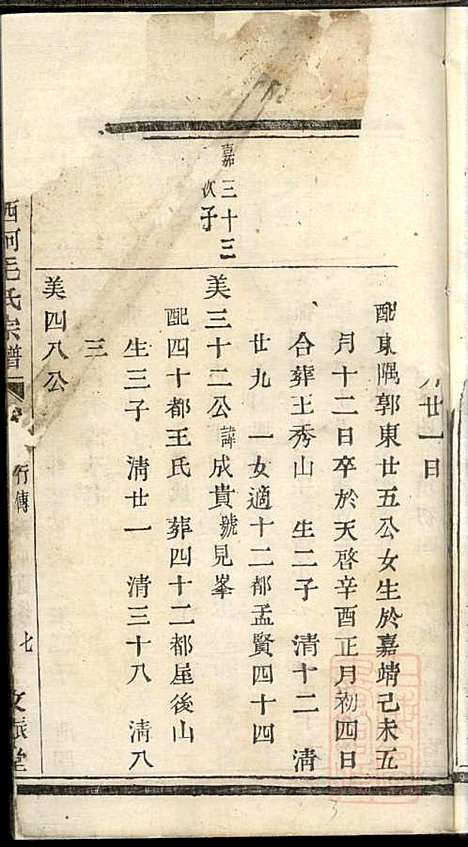 月廿一日
配東隅郭東廿五公女生於嘉靖己未五
月十二日卒於天啓辛酉正月初四日
合葬王秀山 生二子 清十二 清
廿九 一女適十二都孟賢四十四
嘉三十三
次子
美三十二公諱成貴號見峯
配四十都王氏 葬四十二都屋後山
生三子 清廿一 清三十八 清八
三
美四八公
西河毛氏宗譜
行傳
七
文振堂